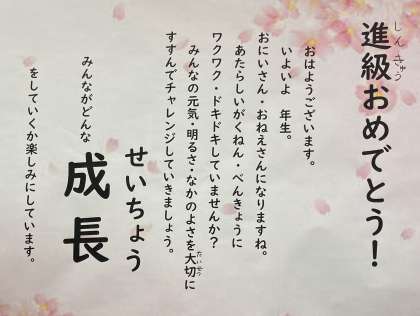 進級おめでとう！
しんきゅう
おはようございます。
いよいよ　年生。
おにいさん・おねえさんになりますね。
あたらしいがくねん・べんきょうに
ワクワク・ドキドキしていませんか？
みんなの元気・明るさ・なかのよさを大切に
たいせつ
すすんでチャレンジしていきましょう。
せいちょう
みんながどんな成長
をしていくか楽しみにしています。